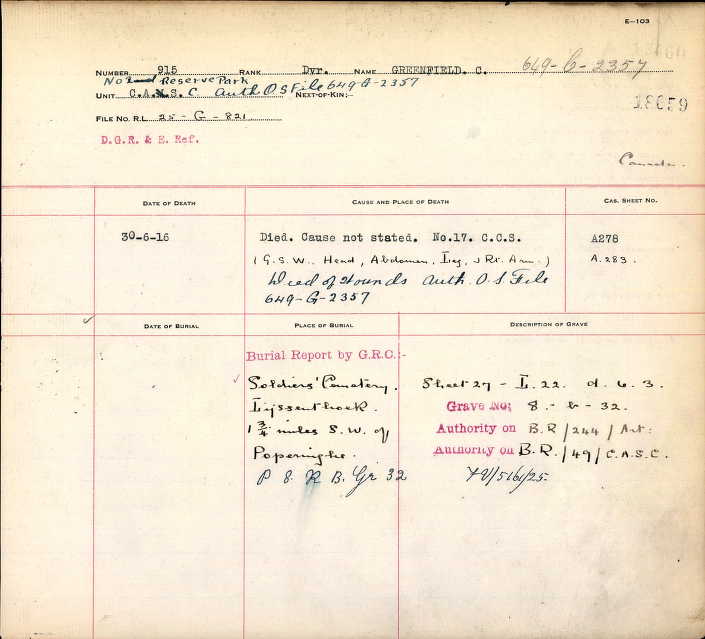 E-103
NUMBER 915 RANK Dvr. NAME GREENFIELD. C. 649-G-2357
No 2 Reserve Park
UNIT C.A.S.C Auth O.S File 649-G-2357 NEXT-OF-KIN:-
18659
FILE NO. R.L. 25-G-821
D.G.R. & E. Ref.
Canada.
DATE OF DEATH CAUSE AND PLACE OF DEATH CAS. SHEET NO.
30-6-16 Died. Cause not stated. No.17. C.C.S. A278
(G.S.W. Head, Abdomen, Leg, & Rt. Arm.) A.283.
Died of Wounds Auth. O.S File
649-G-2357
DATE OF BURIAL PLACE OF BURIAL DESCRIPTION OF GRAVE
Burial Report by G.R.C.:-
Soldiers' Cemetery. Sheet 27 - L. 22. d. 6. 3.
Lijssenthoek. Grave No: 8.- b - 32.
1 3/4 miles S.W. of Authority on B.R/244/Art:
Poperinghe. Authority on B.R./49/C.A.S.C.
P 8. R B. Gr 32